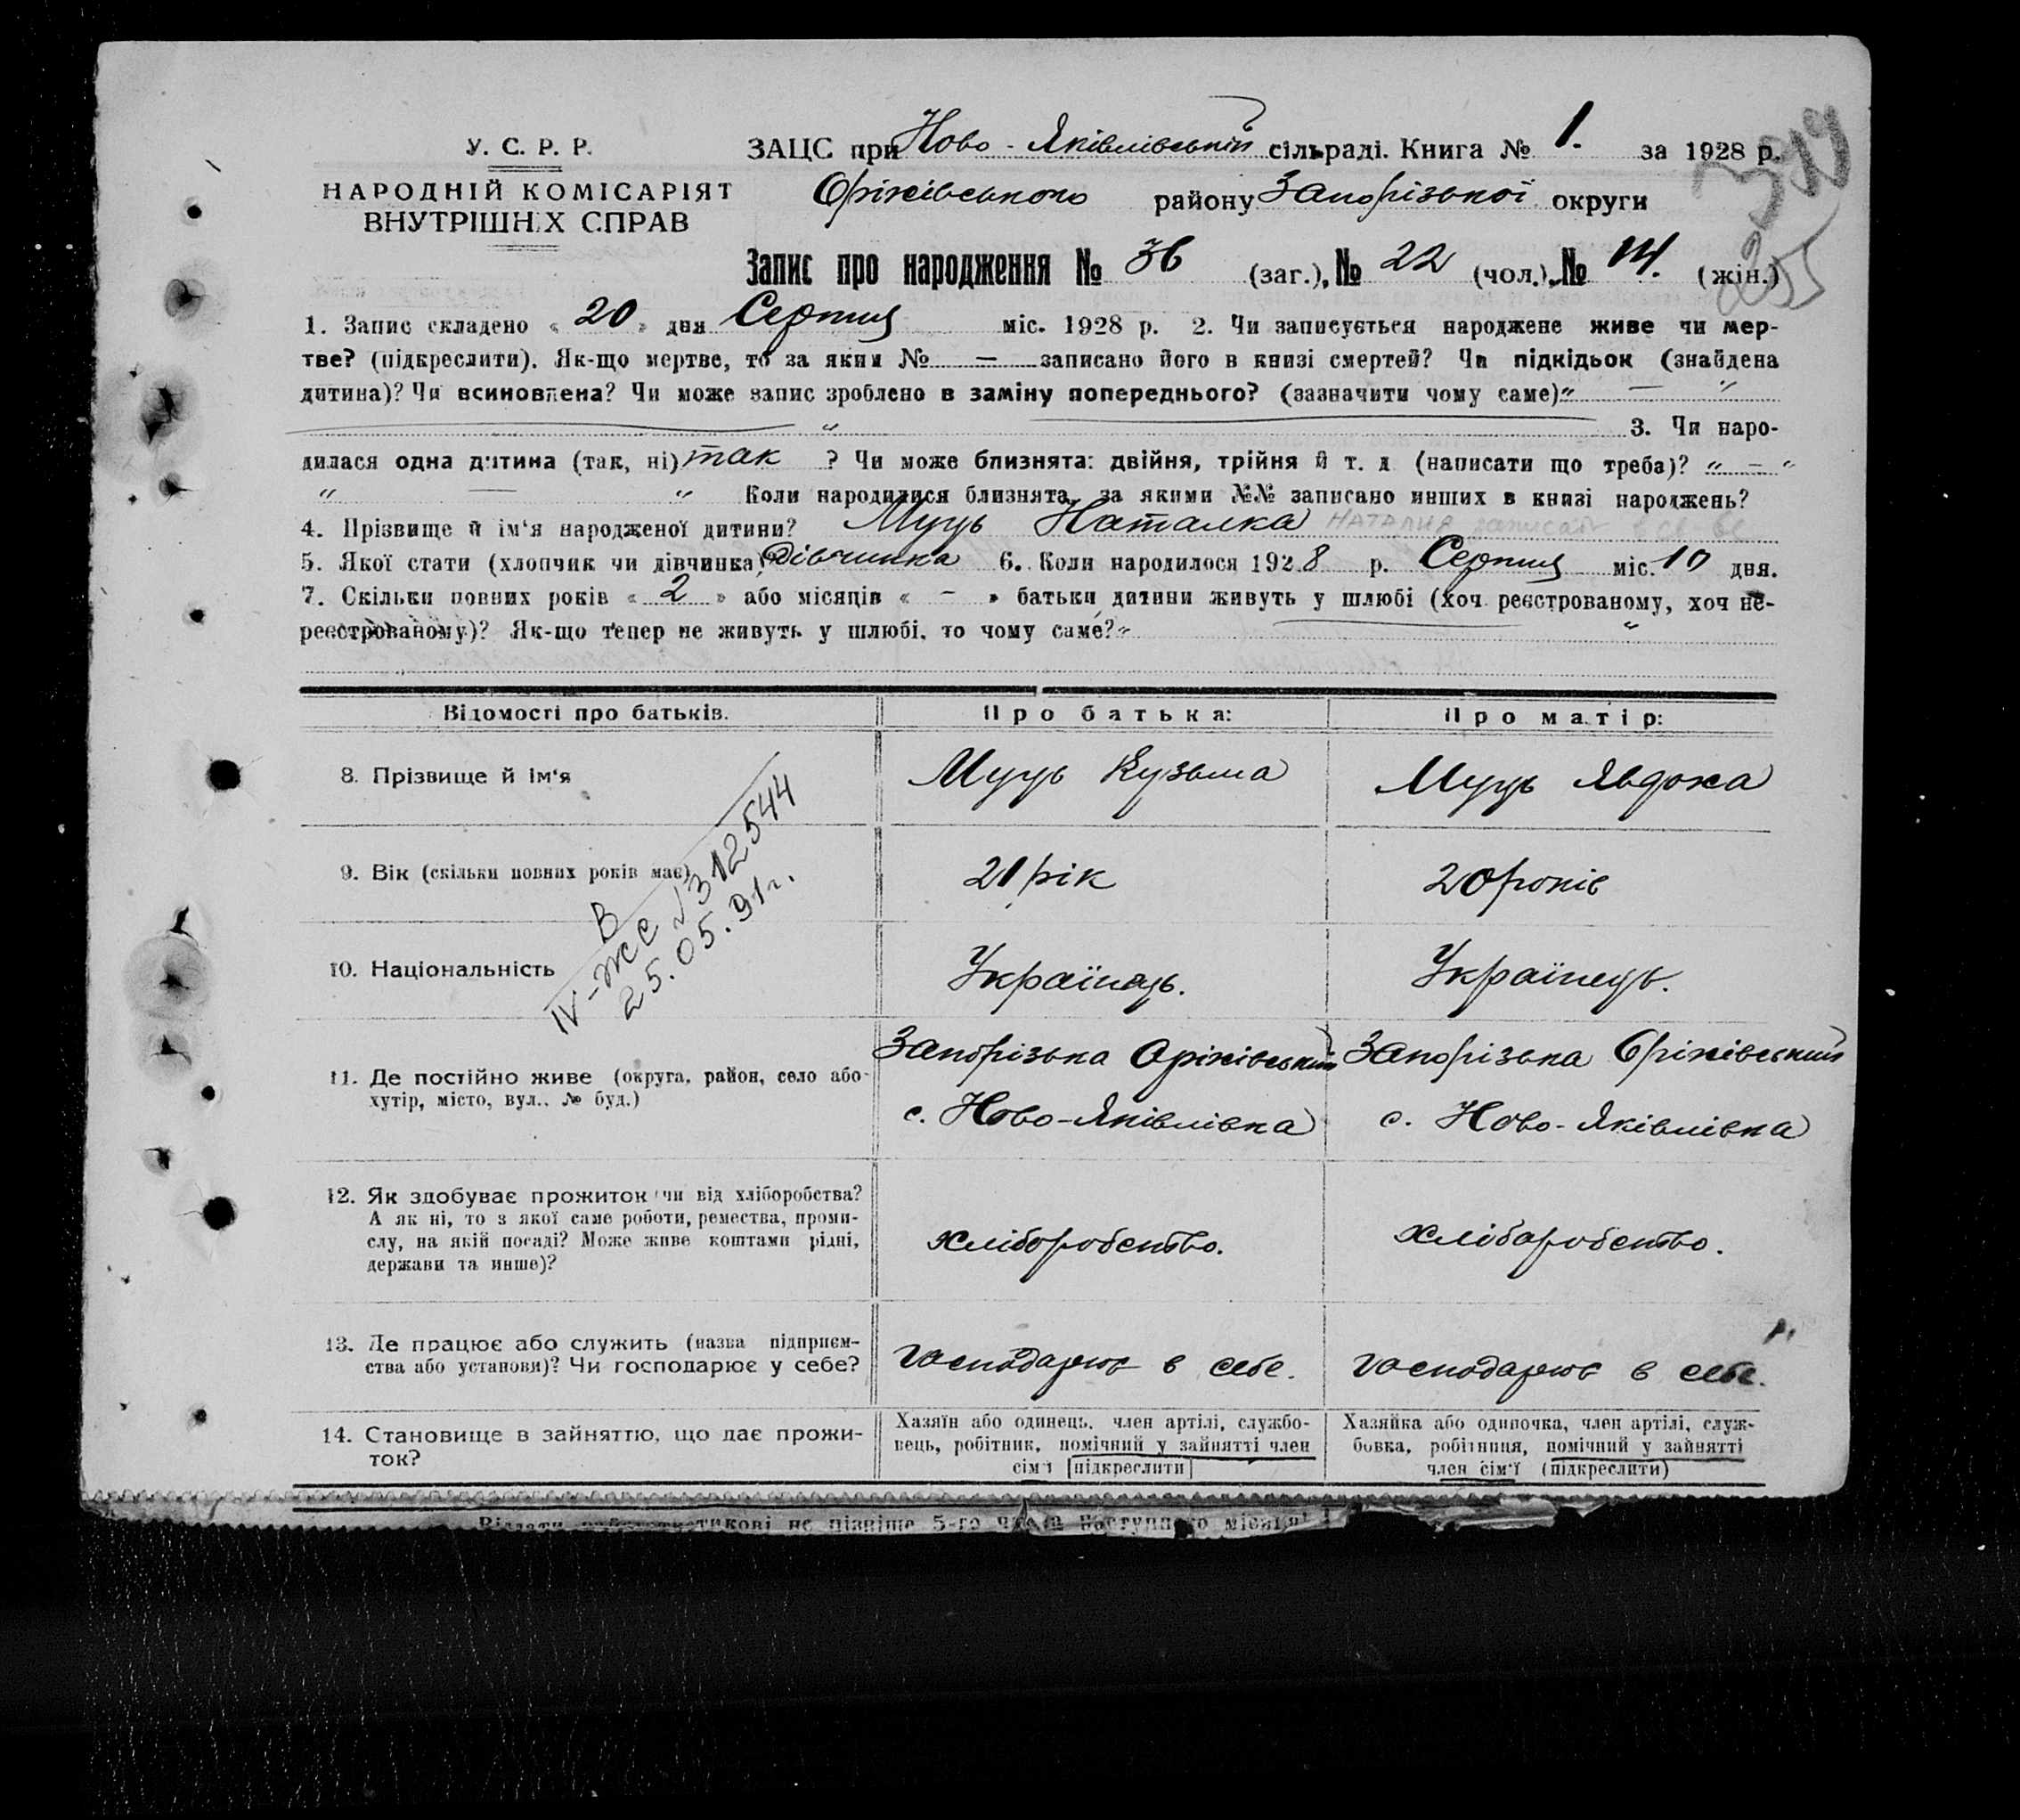 У. С. Р. Р.
НАРОДНІЙ КОМІСАРІЯТ
ВНУТРІШНІХ СПРАВ
ЗАЦС при Ново-Яківлівській сільраді. Книга № 1. за 1928 р.
Оріхівського району Запорізької округи
Запис про народження № 36 (заг.), № 22 (чол.), № 14. (жін.)
255
1. Запис склáдено « 20 » дня Серпня міс. 1928 р. 2. Чи записується народжене живе чи мер-
тве? (підкреслити). Як-що мертве, то за яким № = записано його в книзі смертей? Чи підкідьок (знайдена
дитина)? Чи всиновлена? Чи може запис зроблено в заміну попереднього? (зазначити чому саме) „ — “
„ 3. Чи наро-
дилася одна дитина (так, ні) так ? Чи може близнята: двійня, трійня й т. д (написати що треба)? „ – “
„ — “ Коли народилися близнята, за якими №№ записано инших в книзі народжень?
4. Прізвище й ім'я народженої дитини? Муць Наталка Наталия записать в св-ве
5. Якої стати (хлопчик чи дівчинка)? Дівчинка 6. Коли народилося 1928 р. Серпня міс. 10 дня.
7. Скільки повних років « 2 » або місяців « – » батьки дитини живуть у шлюбі (хоч реєстрованому, хоч не-
реєстрованому)? Як-що тепер не живуть у шлюбі, то чому саме? „ “
Відомості про батьків. Про батька: Про матір:
8. Прізвище й ім'я Муць Кузьма Муць Явдоха
9. Вік (скільки повних років має) 21 рік 20 років
В
IV-ЖС № 312544
25.05.91г.
10. Національність Українець. Українець.
11. Де постійно живе (округа, район, село або Запорізька Оріхівський Запорізька Оріхівський
хутір, місто, вул., № буд.) с. Ново-Яківлівка с. Ново-Яківлівка
12. Як здобуває прожиток чи від хліборобства?
А як ні, то з якої саме роботи, ремества, проми-
слу, на якій посаді? Може живе коштами рідні, хліборобство. хліборобство.
держави та инше)?
13. Де працює або служить (назва підприєм-
ства або установи)? Чи господарює у себе? господарює в себе. господарює в себе.
14. Становище в зайняттю, що дає прожи-
ток?
Хазяїн або одинець, член артілі, службо-
вець, робітник, помічний у зайнятті член
сім'ї [підкреслити]
Хазяйка або одиночка, член артілі, служ-
бовка, робітниця, помічний у зайнятті
член сім'ї (підкреслити)
не пізніше 5-го числа наступного місяця!